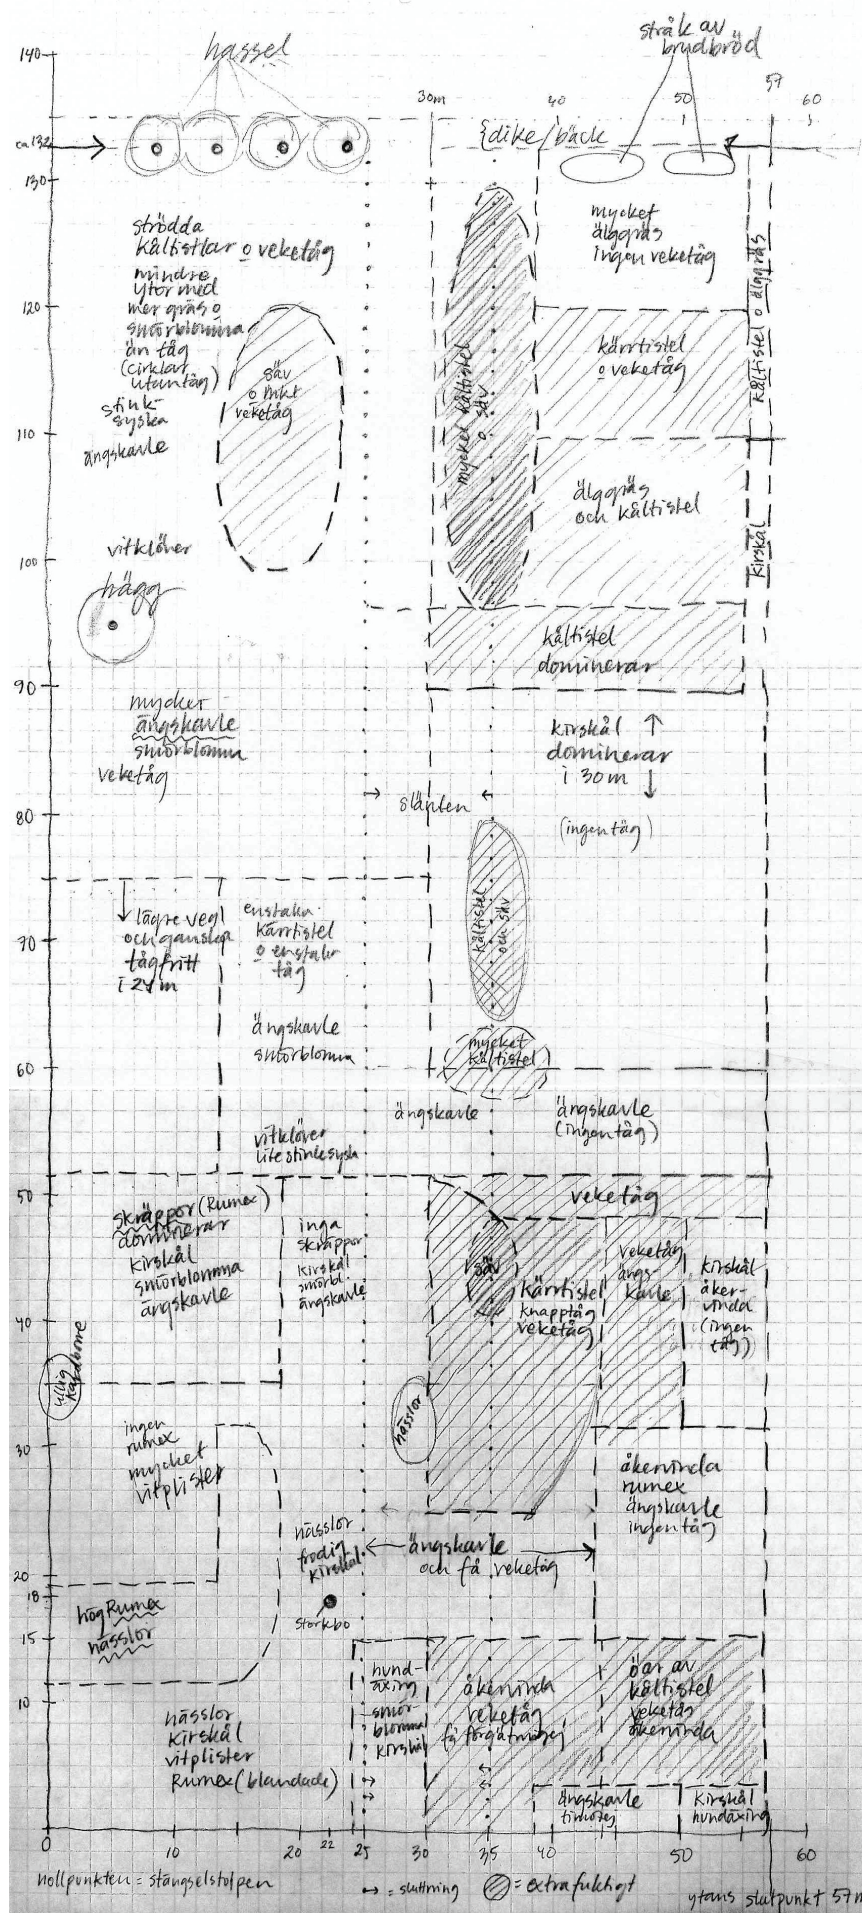 hassel
stråk av
brudbröd
140
30m
40
50
57
60
ca 132
{dike/bäck
130
strödda
kåltistlar o veketåg
mindre
ytor med
mer gräs o
smörblomma
än tåg
(cirklar
utan tåg)
stink-
syska
ängskavle
mycket
älggräs
ingen veketåg
kåltistel o älggräs
120
säv
o mkt
veketåg
mycket kåltistel
o säv
kärrtistel
o veketåg
110
älggräs
och kåltistel
kirskål
vitklöver
100
hägg
kåltistel
dominerar
90
mycket
ängskavle
smörblomma
veketåg
kirskål
dominerar
i 30 m
(ingen tåg)
80
slänten
kåltistel
och säv
lägre veg
och ganska
tågfritt
i 24 m
70
enstaka
kärrtistel
o enstaka
tåg
ängskavle
smörblomma
mycket
kåltistel
60
ängskavle
ängskavle
(ingen tåg)
vitklöver
lite stinksyska
50
skräppor (Rumex)
dominerar
kirskål
smörblomma
ängskavle
inga
skräppor
kirskål
smörbl.
ängskavle
veketåg
säv
kärrtistel
knapptåg
veketåg
veketåg
ängs-
kavle
kirskål
åker-
vinda
(ingen
tåg)
40
ullig
kardborre
nässlor
30
ingen
rumex
mycket
vitplister
åkervinda
rumex
ängskavle
ingen tåg
nässlor
frodig
kirskål
ängskavle
och få veketåg
20
18
storkbo
hög Rumex
nässlor
15
hund-
äxing
smör-
blomma
kirskål
åkervinda
veketåg
få förgätmigej
öar av
kåltistel
veketåg
åkervinda
10
nässlor
kirskål
vitplister
Rumex (blandade)
ängskavle
timotej
kirskål
hundäxing
0
10
20
22
25
30
35
40
50
60
nollpunkten = stängselstolpen
↔ = sluttning
= extra fuktigt
ytans slutpunkt 57m